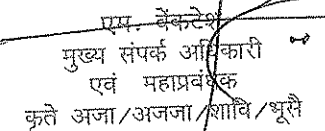 एम. वेंकटेश
मुख्य संपर्क अधिकारी
एवं महाप्रबंधक
कृते अजा/अजजा/शावि/भूसै